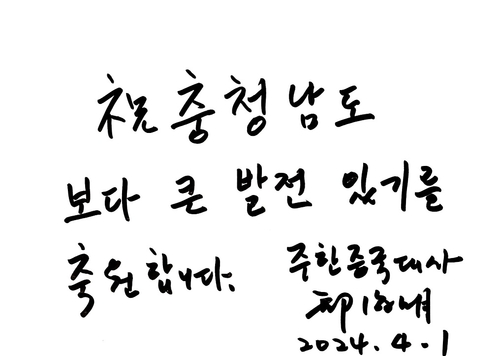 祝 충청남도
보다 큰 발전 있기를
축원합니다.
주한중국대사
2024. 4. 1